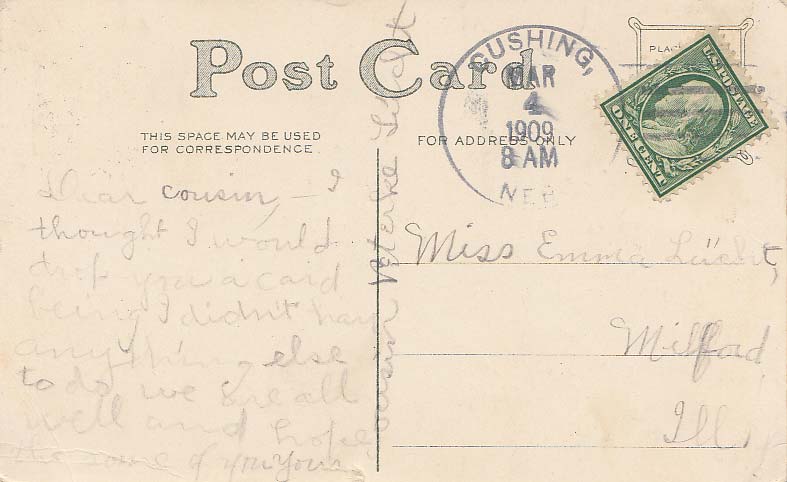 Post Card
THIS SPACE MAY BE USED
FOR CORRESPONDENCE.
FOR ADDRESS ONLY
PLAC
CUSHING,
MAR
4
1909
8 AM
NEB
U.S. POSTAGE
ONE CENT
Dear cousin, – I
thought I would
drop you a card
being I didn't have
anything else
to do. we are all
well and hope
the same of you Your
cousin Lücht
Miss Emma Lücht,
Milford
Ill.